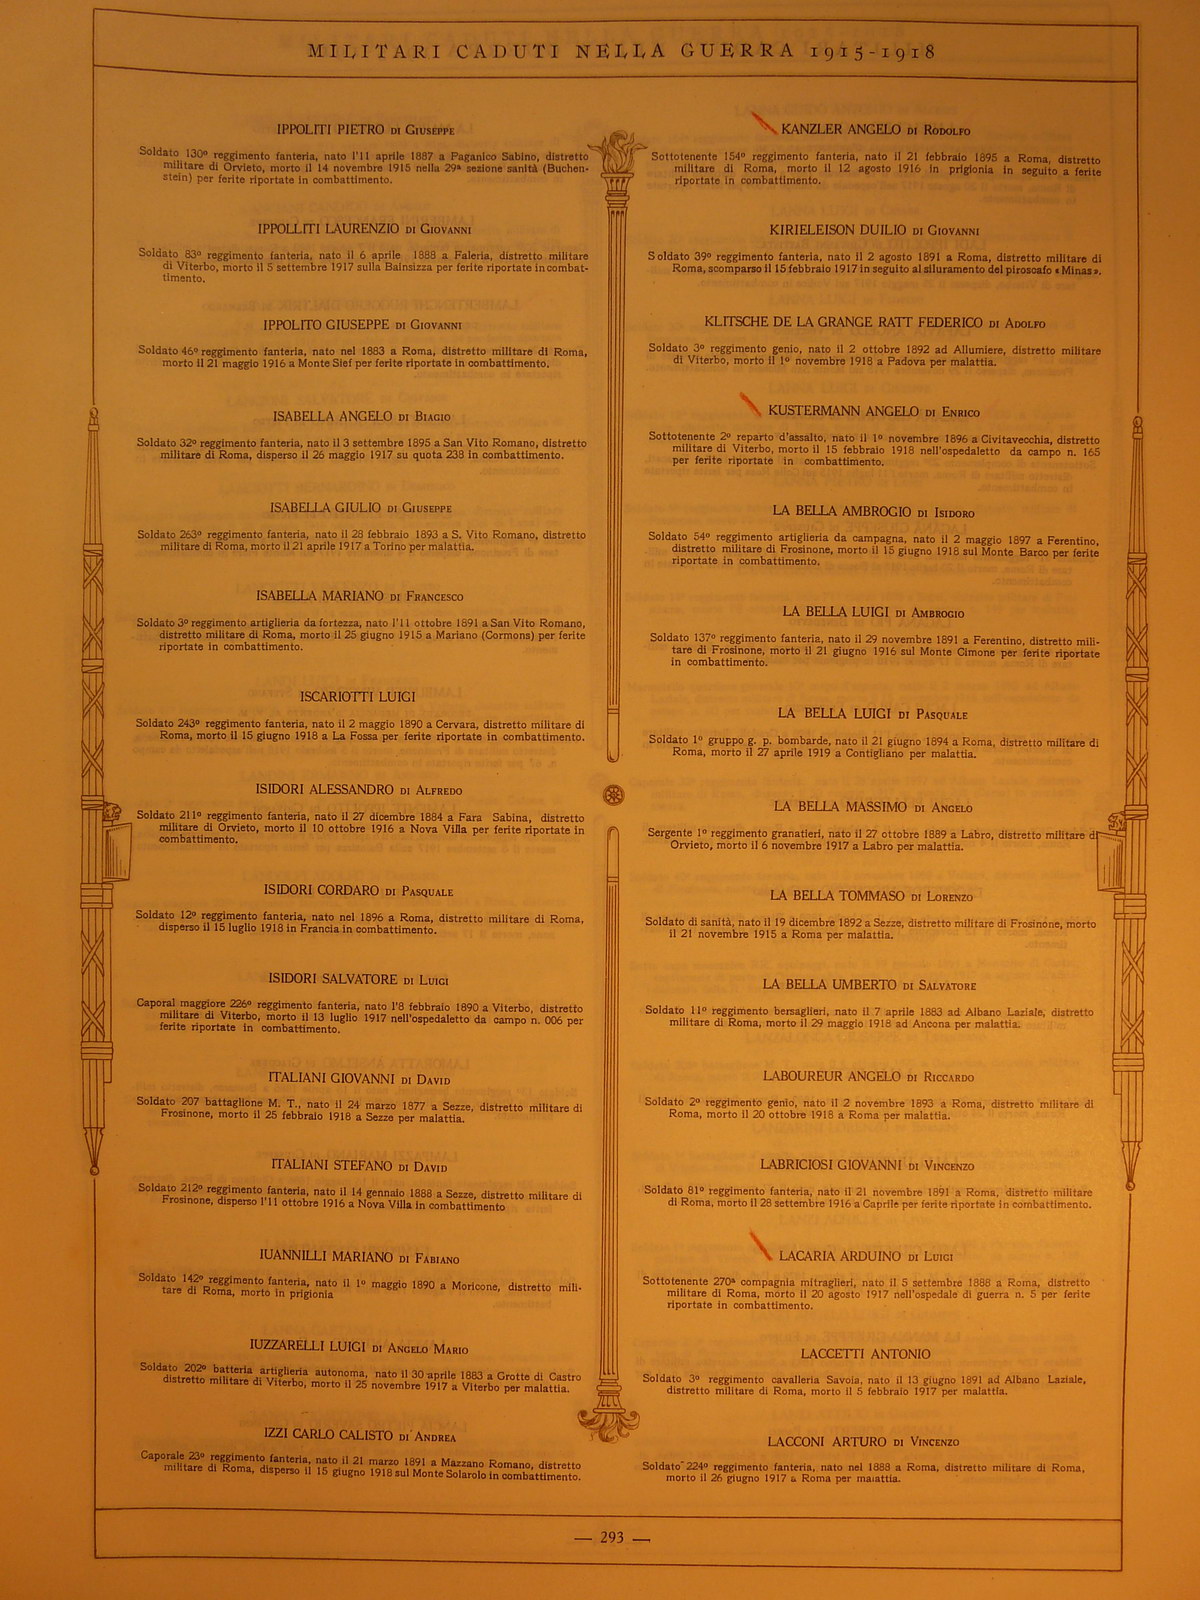 MILITARI CADUTI NELLA GUERRA 1915-1918
IPPOLITI PIETRO DI GIUSEPPE
Soldato 130º reggimento fanteria, nato l'11 aprile 1887 a Paganico Sabino, distretto
militare di Orvieto, morto il 14 novembre 1915 nella 29ª sezione sanità (Buchen-
stein) per ferite riportate in combattimento.
IPPOLLITI LAURENZIO DI GIOVANNI
Soldato 83º reggimento fanteria, nato il 6 aprile 1888 a Faleria, distretto militare
di Viterbo, morto il 5 settembre 1917 sulla Bainsizza per ferite riportate in combat-
timento.
IPPOLITO GIUSEPPE DI GIOVANNI
Soldato 46º reggimento fanteria, nato nel 1883 a Roma, distretto militare di Roma,
morto il 21 maggio 1916 a Monte Sief per ferite riportate in combattimento.
ISABELLA ANGELO DI BIAGIO
Soldato 32º reggimento fanteria, nato il 3 settembre 1895 a San Vito Romano, distretto
militare di Roma, disperso il 26 maggio 1917 su quota 238 in combattimento.
ISABELLA GIULIO DI GIUSEPPE
Soldato 263º reggimento fanteria, nato il 28 febbraio 1893 a S. Vito Romano, distretto
militare di Roma, morto il 21 aprile 1917 a Torino per malattia.
ISABELLA MARIANO DI FRANCESCO
Soldato 3º reggimento artiglieria da fortezza, nato l'11 ottobre 1891 a San Vito Romano,
distretto militare di Roma, morto il 25 giugno 1915 a Mariano (Cormons) per ferite
riportate in combattimento.
ISCARIOTTI LUIGI
Soldato 243º reggimento fanteria, nato il 2 maggio 1890 a Cervara, distretto militare di
Roma, morto il 15 giugno 1918 a La Fossa per ferite riportate in combattimento.
ISIDORI ALESSANDRO DI ALFREDO
Soldato 211º reggimento fanteria, nato il 27 dicembre 1884 a Fara Sabina, distretto
militare di Orvieto, morto il 10 ottobre 1916 a Nova Villa per ferite riportate in
combattimento.
ISIDORI CORDARO DI PASQUALE
Soldato 12º reggimento fanteria, nato nel 1896 a Roma, distretto militare di Roma,
disperso il 15 luglio 1918 in Francia in combattimento.
ISIDORI SALVATORE DI LUIGI
Caporal maggiore 226º reggimento fanteria, nato l'8 febbraio 1890 a Viterbo, distretto
militare di Viterbo, morto il 13 luglio 1917 nell'ospedaletto da campo n. 006 per
ferite riportate in combattimento.
ITALIANI GIOVANNI DI DAVID
Soldato 207 battaglione M. T., nato il 24 marzo 1877 a Sezze, distretto militare di
Frosinone, morto il 25 febbraio 1918 a Sezze per malattia.
ITALIANI STEFANO DI DAVID
Soldato 212º reggimento fanteria, nato il 14 gennaio 1888 a Sezze, distretto militare di
Frosinone, disperso l'11 ottobre 1916 a Nova Villa in combattimento
IUANNILLI MARIANO DI FABIANO
Soldato 142º reggimento fanteria, nato il 1º maggio 1890 a Moricone, distretto mili-
tare di Roma, morto in prigionia
IUZZARELLI LUIGI DI ANGELO MARIO
Soldato 202º batteria artiglieria autonoma, nato il 30 aprile 1883 a Grotte di Castro
distretto militare di Viterbo, morto il 25 novembre 1917 a Viterbo per malattia.
IZZI CARLO CALISTO DI ANDREA
Caporale 23º reggimento fanteria, nato il 21 marzo 1891 a Mazzano Romano, distretto
militare di Roma, disperso il 15 giugno 1918 sul Monte Solarolo in combattimento.
KANZLER ANGELO DI RODOLFO
Sottotenente 154º reggimento fanteria, nato il 21 febbraio 1895 a Roma, distretto
militare di Roma, morto il 12 agosto 1916 in prigionia in seguito a ferite
riportate in combattimento.
KIRIELEISON DUILIO DI GIOVANNI
Soldato 39º reggimento fanteria, nato il 2 agosto 1891 a Roma, distretto militare di
Roma, scomparso il 15 febbraio 1917 in seguito al siluramento del piroscafo «Minas».
KLITSCHE DE LA GRANGE RATT FEDERICO DI ADOLFO
Soldato 3º reggimento genio, nato il 2 ottobre 1892 ad Allumiere, distretto militare
di Viterbo, morto il 1º novembre 1918 a Padova per malattia.
KUSTERMANN ANGELO DI ENRICO
Sottotenente 2º reparto d'assalto, nato il 1º novembre 1896 a Civitavecchia, distretto
militare di Viterbo, morto il 15 febbraio 1918 nell'ospedaletto da campo n. 165
per ferite riportate in combattimento.
LA BELLA AMBROGIO DI ISIDORO
Soldato 54º reggimento artiglieria da campagna, nato il 2 maggio 1897 a Ferentino,
distretto militare di Frosinone, morto il 15 giugno 1918 sul Monte Barco per ferite
riportate in combattimento.
LA BELLA LUIGI DI AMBROGIO
Soldato 137º reggimento fanteria, nato il 29 novembre 1891 a Ferentino, distretto mili-
tare di Frosinone, morto il 21 giugno 1916 sul Monte Cimone per ferite riportate
in combattimento.
LA BELLA LUIGI DI PASQUALE
Soldato 1º gruppo g. p. bombarde, nato il 21 giugno 1894 a Roma, distretto militare di
Roma, morto il 27 aprile 1919 a Contigliano per malattia.
LA BELLA MASSIMO DI ANGELO
Sergente 1º reggimento granatieri, nato il 27 ottobre 1889 a Labro, distretto militare di
Orvieto, morto il 6 novembre 1917 a Labro per malattia.
LA BELLA TOMMASO DI LORENZO
Soldato di sanità, nato il 19 dicembre 1892 a Sezze, distretto militare di Frosinone, morto
il 21 novembre 1915 a Roma per malattia.
LA BELLA UMBERTO DI SALVATORE
Soldato 11º reggimento bersaglieri, nato il 7 aprile 1883 ad Albano Laziale, distretto
militare di Roma, morto il 29 maggio 1918 ad Ancona per malattia.
LABOUREUR ANGELO DI RICCARDO
Soldato 2º reggimento genio, nato il 2 novembre 1893 a Roma, distretto militare di
Roma, morto il 20 ottobre 1918 a Roma per malattia.
LABRICIOSI GIOVANNI DI VINCENZO
Soldato 81º reggimento fanteria, nato il 21 novembre 1891 a Roma, distretto militare
di Roma, morto il 28 settembre 1916 a Caprile per ferite riportate in combattimento.
LACARIA ARDUINO DI LUIGI
Sottotenente 270ª compagnia mitraglieri, nato il 5 settembre 1888 a Roma, distretto
militare di Roma, morto il 20 agosto 1917 nell'ospedale di guerra n. 5 per ferite
riportate in combattimento.
LACCETTI ANTONIO
Soldato 3º reggimento cavalleria Savoia, nato il 13 giugno 1891 ad Albano Laziale,
distretto militare di Roma, morto il 5 febbraio 1917 per malattia.
LACCONI ARTURO DI VINCENZO
Soldato 224º reggimento fanteria, nato nel 1888 a Roma, distretto militare di Roma,
morto il 26 giugno 1917 a Roma per malattia.
— 293 —